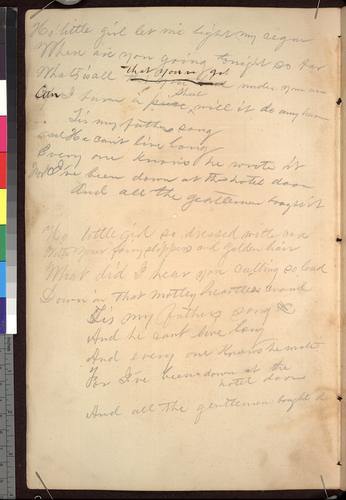 Ho little girl let me light my cegar
Where are you going tonight so far
Whats all that you got under your arm
Can I have a please will it do any harm
Tis my fathers song
and He cant live long
Every one knows he wrote it
For I've been down at the hotel door
And all the gentlemen bought it
Ho little girl so dressed with
With your fairy slippers and golden hair
What did I hear you calling so loud
Down in that motley heartless crowd
Tis my fathers song &
And he cant live long
And every one knows he wrote
For I've been down at the
hotel door
And all the gentlemen bought it